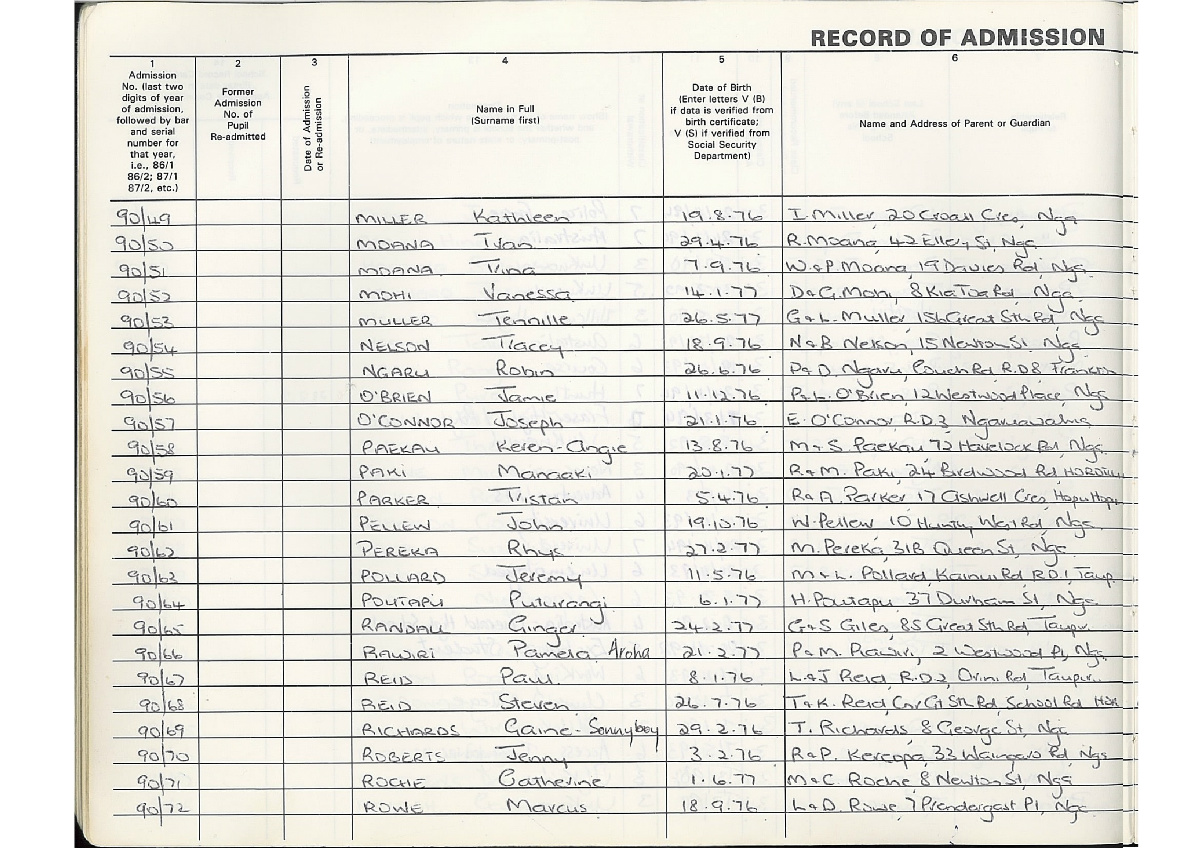 RECORD OF ADMISSION
1 2 3 4 5 6
Admission No. (last two digits of year of admission, followed by bar and serial number for that year, i.e., 86/1 86/2; 87/1 87/2, etc.)
Former Admission No. of Pupil Re-admitted
Date of Admission or Re-admission
Name in Full (Surname first)
Date of Birth (Enter letters V (B) if data is verified from birth certificate; V (S) if verified from Social Security Department)
Name and Address of Parent or Guardian
90/49 MILLER Kathleen 19.8.76 I. Miller 20 Croall Cres, Nga
90/50 MOANA Ivan 29.4.76 R. Moana, 42 Ellery St, Nga
90/51 MOANA Tina 7.9.76 W & P Moana, 19 Davies Rd, Nga
90/52 MOHI Vanessa 14.1.77 D & G. Mohi, 8 Kia Toa Rd, Nga
90/53 MULLER Tennille 26.5.77 G & L. Muller Great Sth Rd, Nga
90/54 NELSON Tracey 18.9.76 N & B Nelson, 15 Newton St Nga
90/55 NGARU Robin 26.6.76 P & D. Ngaru, Couch Rd R.D 8 Frankton
90/56 O'BRIEN Jamie 11.12.76 P & L. O'Brien, 12 Westwood Place, Nga
90/57 O'CONNOR Joseph 21.1.76 E. O'Connor R.D.3 Ngaruawahia
90/58 PAEKAU Keren-Angie 13.8.76 M & S. Paekau, 72 Havelock Rd, Nga
90/59 PAKI Manaaki 20.1.77 R & M. Paki, 24 Birdwood Rd
90/60 PARKER Tristan 5.4.76 R & A. Parker 17 Ashwell Cres, Hopu Hopu
90/61 PELLEW John 19.10.76 W. Pellew 10 Huntly West Rd, Nga
90/62 PEREKA Rhys 27.2.77 M. Pereka, 31B Queen St, Nga
90/63 POLLARD Jeremy 11.5.76 M & L. Pollard, Kainui Rd R.D.1, Taup.
90/64 POUTAPU Puturangi 6.1.77 H. Poutapu, 37 Durham St, Nga
90/65 RANDALL Ginger 24.2.77 G & S Giles, 85 Great Sth Rd, Taupiri
90/66 RAWIRI Pamela Aroha 21.2.77 P & M. Rawiri, 2 Westwood Pl, Nga
90/67 REID Paul 8.1.76 L & J Reid, R.D.2, Orini Rd, Taupiri
90/68 REID Steven 26.7.76 T & K. Reid, Cnr Gt Sth Rd, School Rd
90/69 RICHARDS Gaine-Sonnyboy 29.2.76 T. Richards 8 George St, Nga
90/70 ROBERTS Jenny 3.2.76 R & P. Kereopa, 33 Waingaro Rd, Nga
90/71 ROCHE Catherine 1.6.77 M & C. Roche, 8 Newton St, Nga
90/72 ROWE Marcus 18.9.76 L & D. Rowe 7 Prendergast Pl, Nga